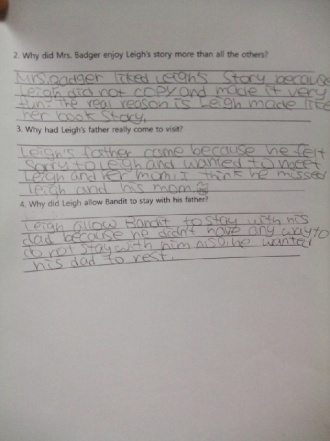 2. Why did Mrs. Badger enjoy Leigh's story more than all the others?
Mrs. Badger liked Leigh's story because
Leigh did not copy and made it very
fun. The real reason is Leigh made like
her book story.
3. Why had Leigh's father really come to visit?
Leigh's father came because he felt
sorry to Leigh and wanted to meet
Leigh and her mom, I think he missed
Leigh and his mom
4. Why did Leigh allow Bandit to stay with his father?
Leigh allow Bandit to stay with his
dad because he didn't have any way to
do not stay with him also he wanted
his dad to rest.